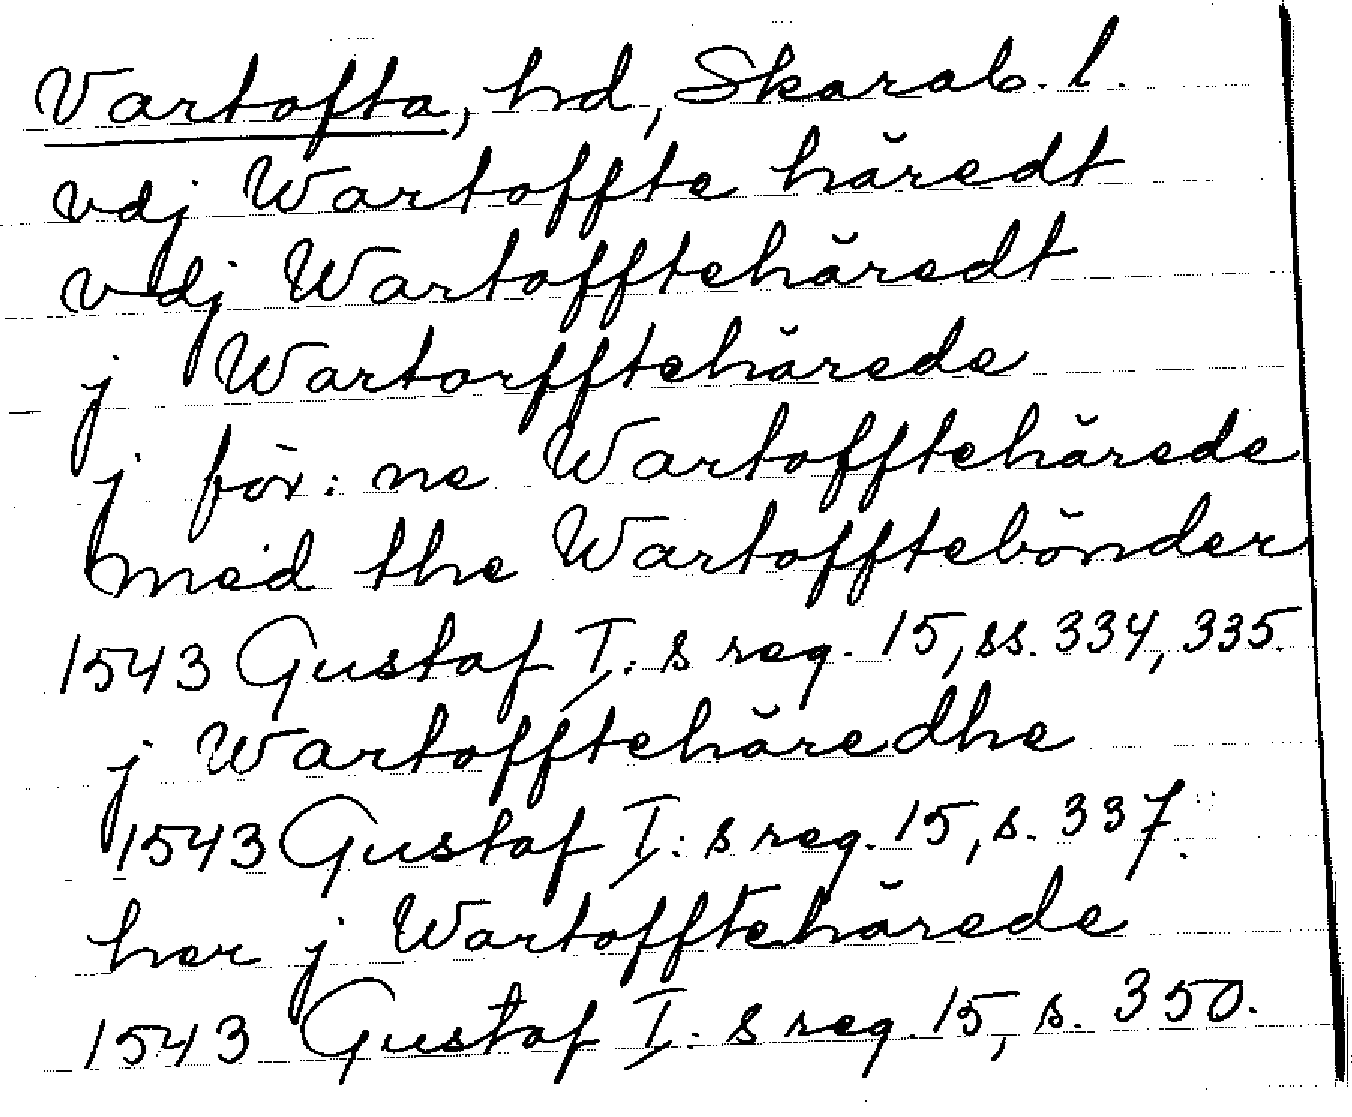 Vartofta, hd, Skarab. l.
vdj Wartoffte häredt
vdj Wartofftehäredt
j Wartorfftehärede
j för: ne Wartofftehärede
med the Wartofftebönder
1543 Gustaf I: s reg. 15, ss. 334, 335.
j Wartofftehäredhe
1543 Gustaf I: s reg. 15, s. 337.
her j Wartofftehärede
1543 Gustaf I: s reg. 15, s. 350.